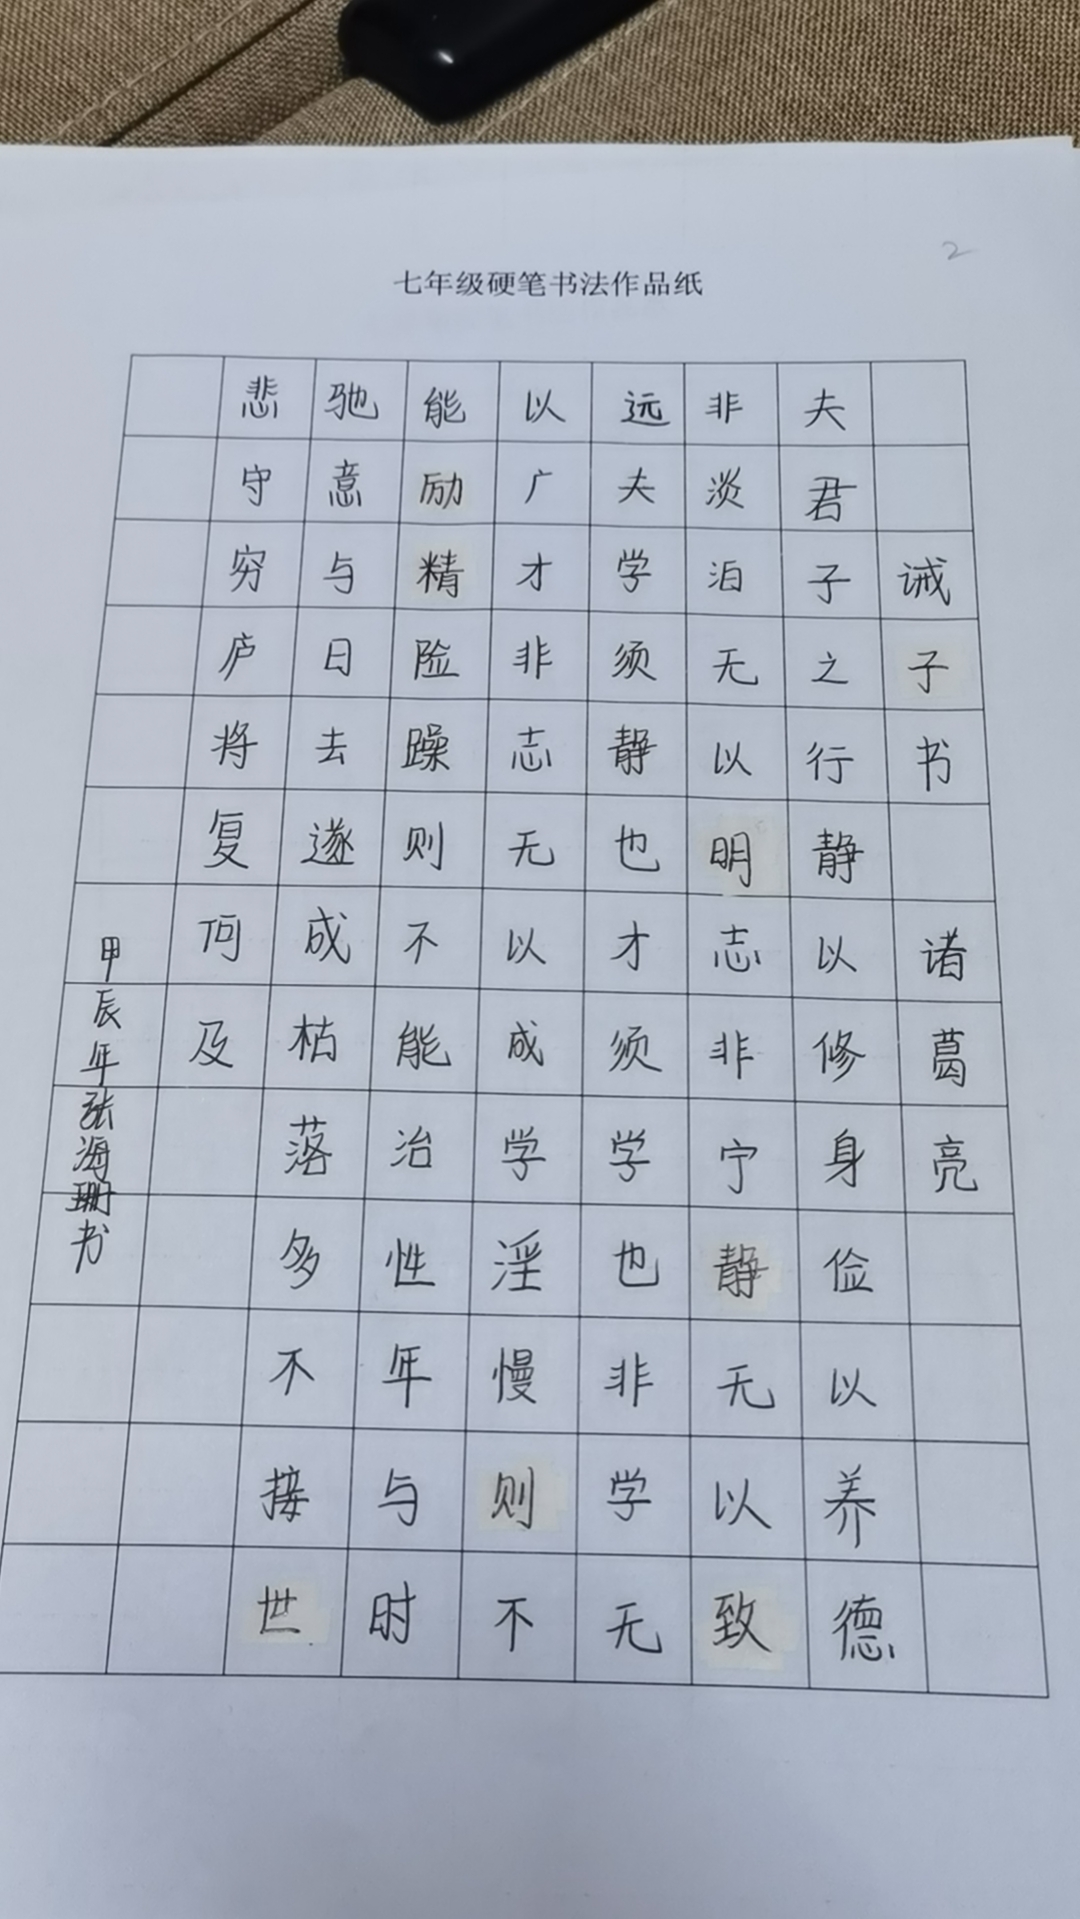 2
七年级硬笔书法作品纸
诫子书 诸葛亮
夫君子之行静以修身俭以养德
非淡泊无以明志非宁静无以致
远夫学须静也才须学也非学无
以广才非志无以成学淫慢则不
能励精险躁则不能治性年与时
驰意与日去遂成枯落多不接世
悲守穷庐将复何及
甲辰年张海珊书